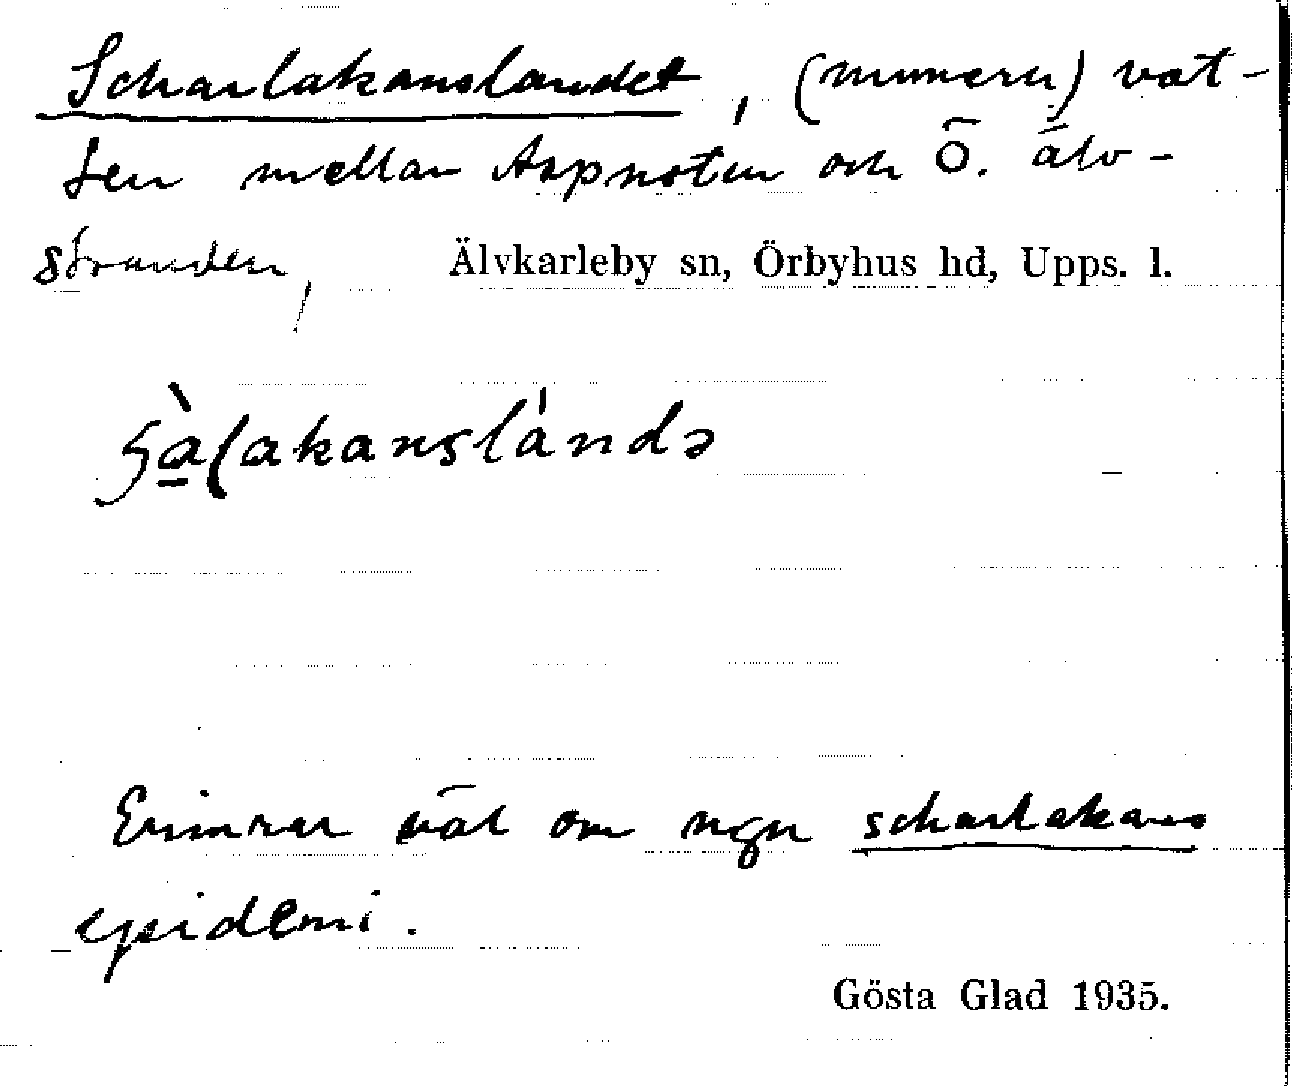 Scharlakanslandet, (numera) vat-
ten mellan Aspnoten och Ö. älv-
stranden, Älvkarleby sn, Örbyhus hd, Upps. l.
ʂàlakanslándə
Erinrar väl om ngn scharlakans
epidemi.
Gösta Glad 1935.